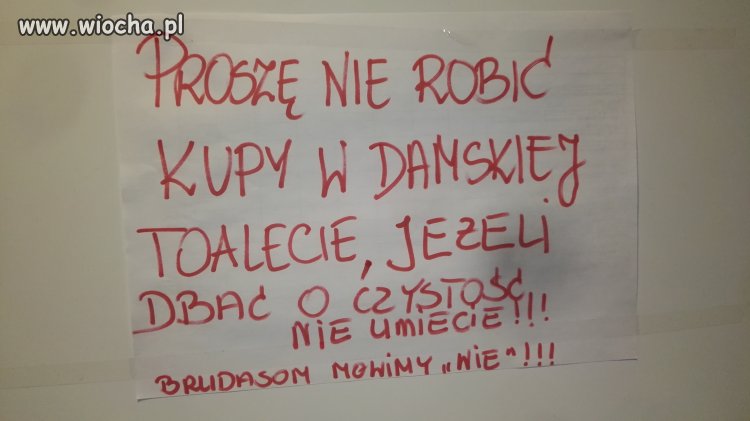 www.wiocha.pl
PROSZĘ NIE ROBIĆ
KUPY W DAMSKIEJ
TOALECIE, JEZELI
DBAĆ O CZYSTOŚĆ
NIE UMIECIE!!!
BRUDASOM MOWIMY „NIE"!!!